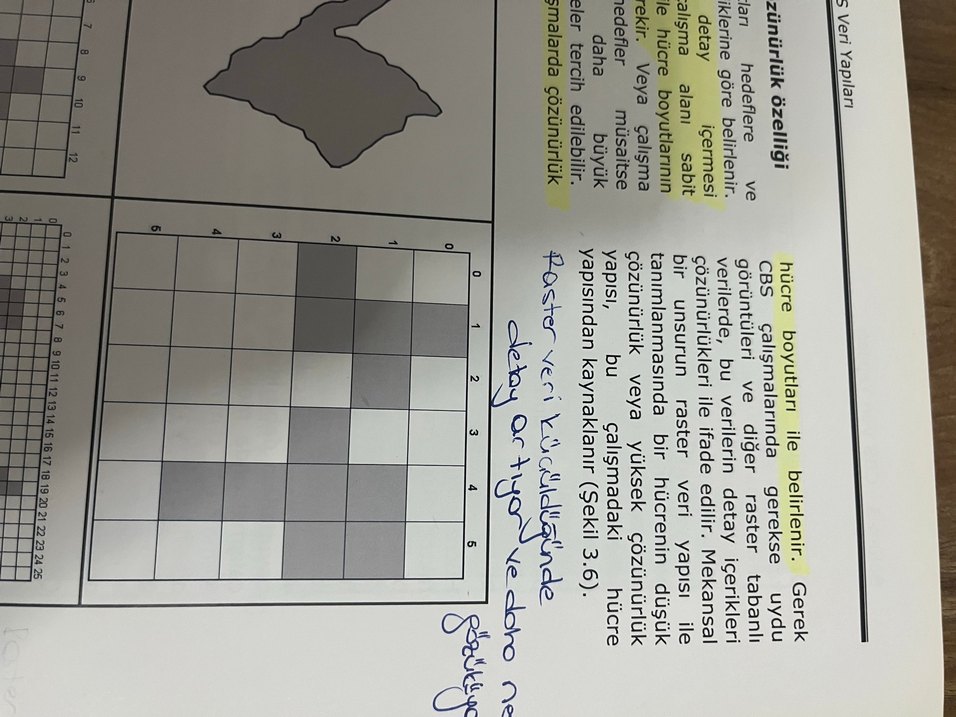 S Veri Yapıları
zünürlük özelliği
ları hedeflere ve
iklerine göre belirlenir.
detay içermesi
çalışma alanı sabit
ile hücre boyutlarının
rekir. Veya çalışma
hedefler müsaitse
daha büyük
eler tercih edilebilir.
şmalarda çözünürlük
hücre boyutları ile belirlenir. Gerek
CBS çalışmalarında gerekse uydu
görüntüleri ve diğer raster tabanlı
verilerde, bu verilerin detay içerikleri
çözünürlükleri ile ifade edilir. Mekansal
bir unsurun raster veri yapısı ile
tanımlanmasında bir hücrenin düşük
çözünürlük veya yüksek çözünürlük
yapısı, bu çalışmadaki hücre
yapısından kaynaklanır (Şekil 3.6).
Raster veri küçüldüğünde
detay artıyor ve daha ne
gözüküyo
0 1 2 3 4 5
0
1
2
3
4
5
6 7 8 9 10 11 12
0 1 2 3 4 5 6 7 8 9 10 11 12 13 14 15 16 17 18 19 20 21 22 23 24 25
0
1
2
3